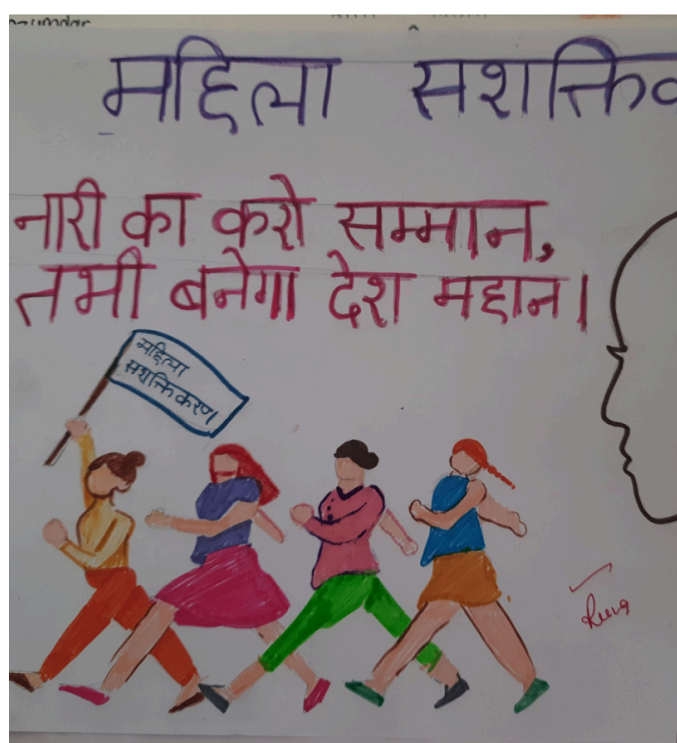 महिला सशक्ति
नारी का करो सम्मान,
तभी बनेगा देश महान।
महिला
सशक्तिकरण।